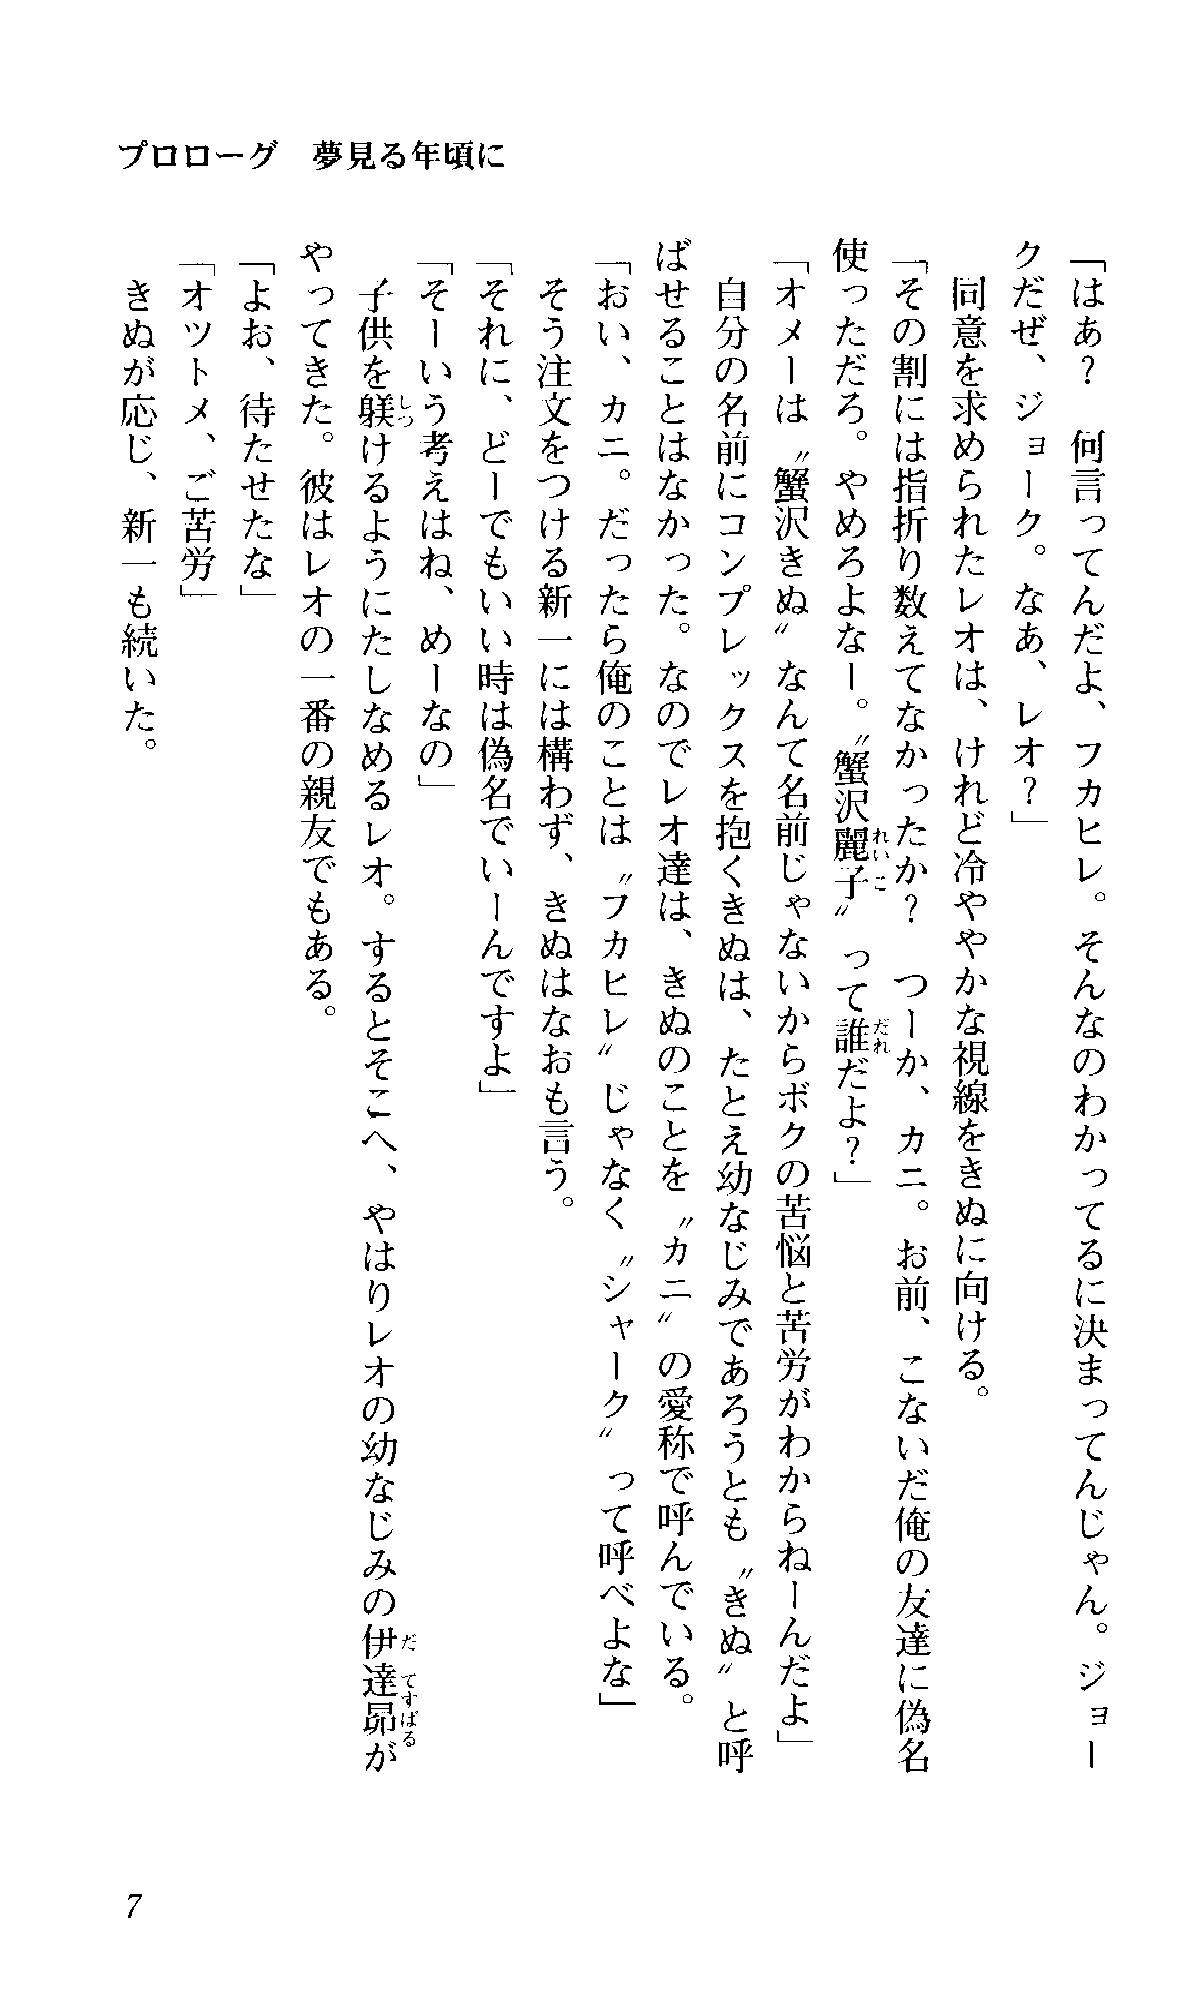 プロローグ　夢見る年頃に
「はあ？　何言ってんだよ、フカヒレ。そんなのわかってるに決まってんじゃん。ジョー
クだぜ、ジョーク。なあ、レオ？」
　同意を求められたレオは、けれど冷ややかな視線をきぬに向ける。
「その割には指折り数えてなかったか？　つーか、カニ。お前、こないだ俺の友達に偽名
使っただろ。やめろよなー。〝蟹沢麗子〟って誰だよ？」
「オメーは〝蟹沢きぬ〟なんて名前じゃないからボクの苦悩と苦労がわからねーんだよ」
　自分の名前にコンプレックスを抱くきぬは、たとえ幼なじみであろうとも〝きぬ〟と呼
ばせることはなかった。なのでレオ達は、きぬのことを〝カニ〟の愛称で呼んでいる。
「おい、カニ。だったら俺のことは〝フカヒレ〟じゃなく〝シャーク〟って呼べよな」
　そう注文をつける新一には構わず、きぬはなおも言う。
「それに、どーでもいい時は偽名でいーんですよ」
「そーいう考えはね、めーなの」
　子供を躾けるようにたしなめるレオ。するとそこへ、やはりレオの幼なじみの伊達昴が
やってきた。彼はレオの一番の親友でもある。
「よお、待たせたな」
「オツトメ、ご苦労」
　きぬが応じ、新一も続いた。
れいこ
だれ
しつ
だてすばる
7